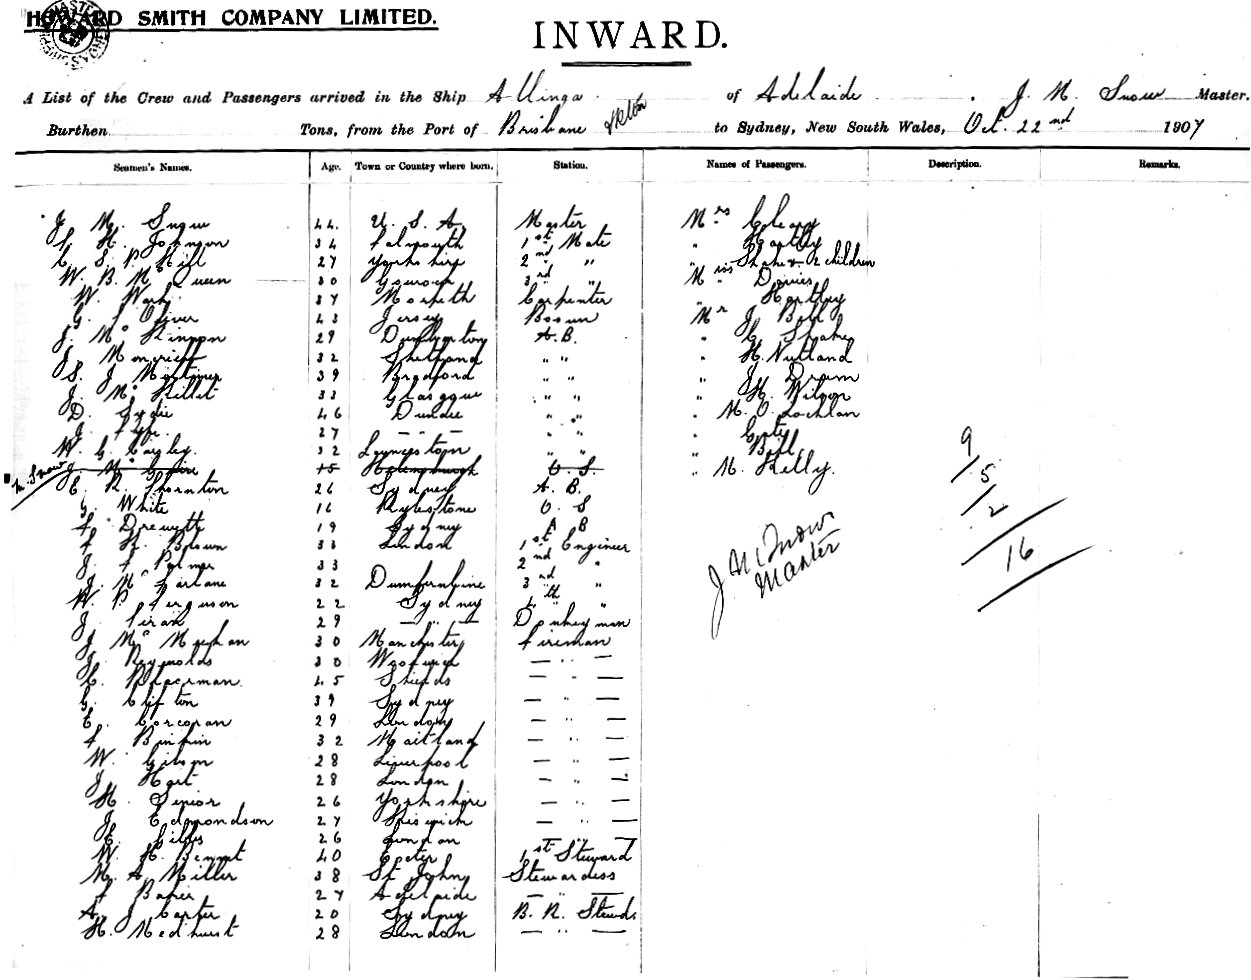 HOWARD SMITH COMPANY LIMITED.
INWARD.
A List of the Crew and Passengers arrived in the Ship Allinga of Adelaide J. M. Snow Master.
Burthen Tons, from the Port of Brisbane to Sydney, New South Wales, Oct. 22nd 1907
Seamen's Names. Age. Town or Country where born. Station. Names of Passengers. Description. Remarks.
J. M. Snow 44. U. S. A Master Mrs Cleary
H. Johnson 34 Falmouth 1st Mate " Hartley
C. S. P. Hill 27 Yorkshire 2nd " " Shake & 2 children
W. B. McQueen 30 Gourock 3rd " Miss Davies
W. Wark 37 Morpeth Carpenter " Hartley
G. Oliver 43 Jersey Bosun Mr J. Ball
J. McKinnon 29 Dumbarton A.B. " C. Shake
J. Moncrieff 32 Shetland " " " H. Nutland
S. J. Mortimer 39 Bradford " " " J.
J. Mc 33 Glasgow " " " H. Wilson
D. 46 Dundee " " " M. O Lochlan
J. Fyfe 27 - - - " " "
W. G. 32 " " " Ball
M. Snow
J. 15 O. S. " M. Kelly.
E. R. Thornton 26 Sydney A. B.
G. White 16 Rylestone O. S
F. Drewett 19 Sydney A B
F. H. Brown 33 London 1st Engineer
J. F. Palmer 33 2nd "
J. McFarlane 32 Dumfernline 3rd "
W. P. Ferguson 22 Sydney 4th "
J. 29 — " — Donkeyman
J. McMeehan 30 Manchester Fireman
J. Reynolds 30 Woolwich — " —
C. 45 Shields — " —
G. Clifton 39 Sydney — " —
E. Corcoran 29 London — " —
F. 32 Maitland — " —
W. Gibson 28 Liverpool — " —
J. Hart 28 London — " —
H. Senior 26 Yorkshire — " —
J. Edmondson 27 — " —
E. 26 London — " —
W. H. Bennet 40 Exeter 1st Steward
M. A. Miller 38 St. Johns Stewardess
F. Baker 27 Adelaide — " —
A. J. Carter 20 Sydney B. R. Stewds
H. Medhurst 28 London — " —
9
5
2
16
J M Snow
Master